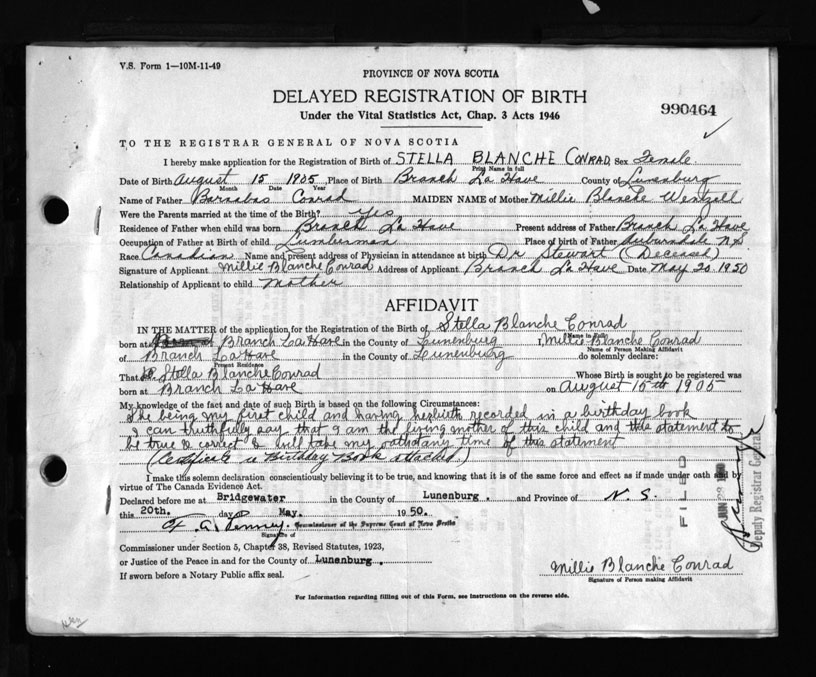 V.S. Form 1—10M-11-49
PROVINCE OF NOVA SCOTIA
DELAYED REGISTRATION OF BIRTH
Under the Vital Statistics Act, Chap. 3 Acts 1946
990464
TO THE REGISTRAR GENERAL OF NOVA SCOTIA
I hereby make application for the Registration of Birth of STELLA BLANCHE CONRAD Sex Female
Print Name in full
Date of Birth August 15 1905 Place of Birth Branch La Have County of Lunenburg
Month Date Year
Name of Father Barnabas Conrad MAIDEN NAME of Mother Millie Blanche Wentzell
Were the Parents married at the time of the Birth? yes
Residence of Father when child was born Branch La Have Present address of Father Branch La Have
Occupation of Father at Birth of child Lumberman Place of birth of Father Auburndale N.S.
Race Canadian Name and present address of Physician in attendance at birth Dr Stewart (Deceased)
Signature of Applicant Millie Blanche Conrad Address of Applicant Branch La Have Date May 20 1950
Relationship of Applicant to child Mother
AFFIDAVIT
IN THE MATTER of the application for the Registration of the Birth of Stella Blanche Conrad
born at Branch La Have in the County of Lunenburg I, Millie Blanche Conrad
Name in Full
Name of Person Making Affidavit
of Branch La Have in the County of Lunenburg do solemnly declare:
Present Residence
That Stella Blanche Conrad Whose Birth is sought to be registered was
born at Branch La Have on August 15th 1905
My knowledge of the fact and date of such Birth is based on the following Circumstances:
She being my first child and having her birth recorded in a birthday book
I can truthfully say that I am the living mother of this child and this statement to
be true & correct & will take my oath at any time of this statement
(Certificate in Birthday Book attached)
I make this solemn declaration conscientiously believing it to be true, and knowing that it is of the same force and effect as if made under oath and by
virtue of The Canada Evidence Act.
Declared before me at Bridgewater in the County of Lunenburg. and Province of N. S.
this 20th. day of May. 1950.
Commissioner of the Supreme Court of Nova Scotia
Signature of
Commissioner under Section 5, Chapter 38, Revised Statutes, 1923,
or Justice of the Peace in and for the County of Lunenburg.
If sworn before a Notary Public affix seal.
Millie Blanche Conrad
Signature of Person making Affidavit
For Information regarding filling out of this Form, see instructions on the reverse side.
FILED
Deputy Registrar General